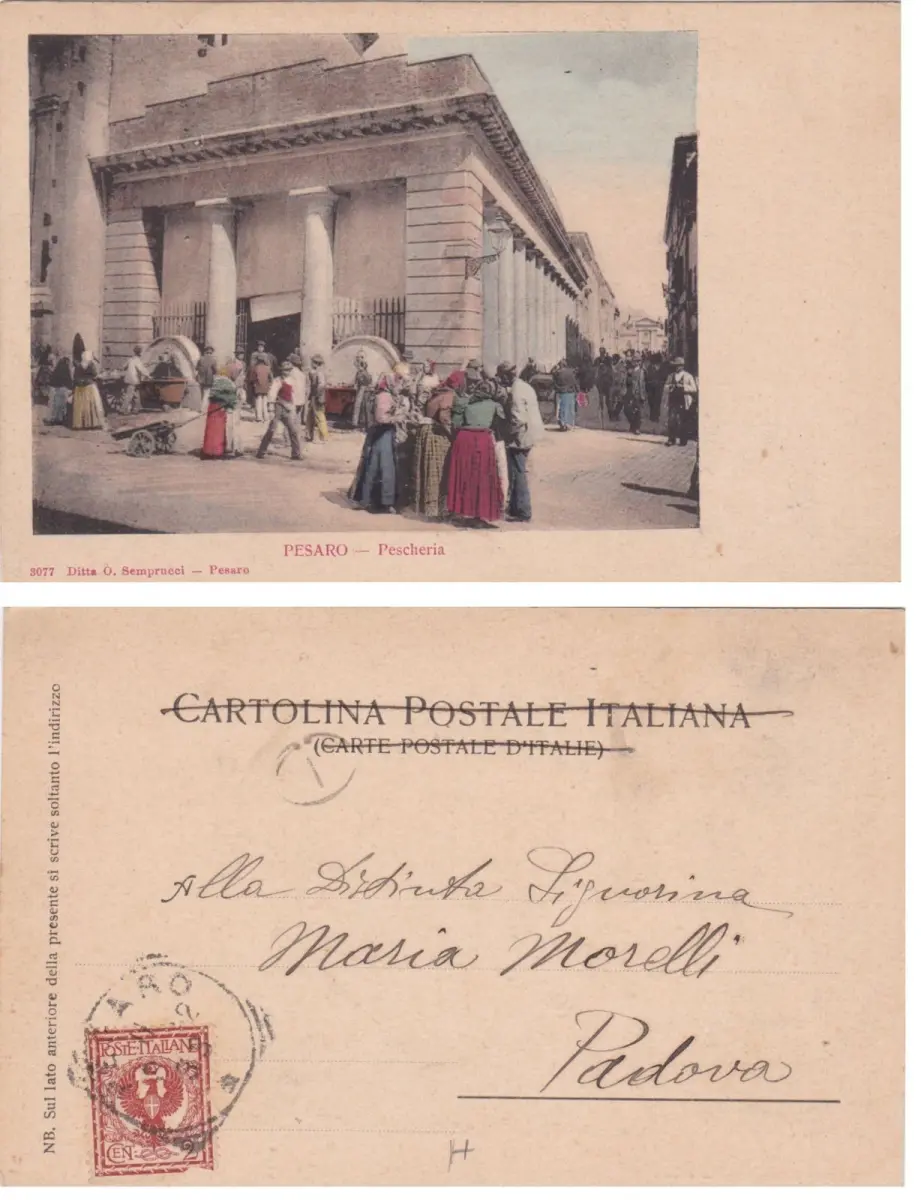 PESARO — Pescheria
3077 Ditta O. Semprucci — Pesaro
CARTOLINA POSTALE ITALIANA
(CARTE POSTALE D'ITALIE)
1
Alla Distinta Signorina
Maria Morelli
Padova
NB. Sul lato anteriore della presente si scrive soltanto l'indirizzo
POSTE·ITALIANE
CEN. 2
H